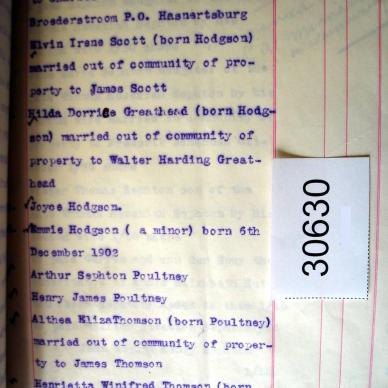 Broederstroom P.O. Hasnertsburg
Elvin Irene Scott (born Hodgson)
married out of community of pro-
perty to James Scott
Hilda Dorrige Greathead (born Hodg-
son) married out of community of
property to Walter Harding Great-
head
Joyce Hodgson.
Emmie Hodgson ( a minor) born 6th
December 1902
Arthur Sephton Poultney
Henry James Poultney
Althea ElizaThomson (born Poultney)
married out of community of proper-
ty to James Thomson
Henrietta Winifred Thomson (born
30630